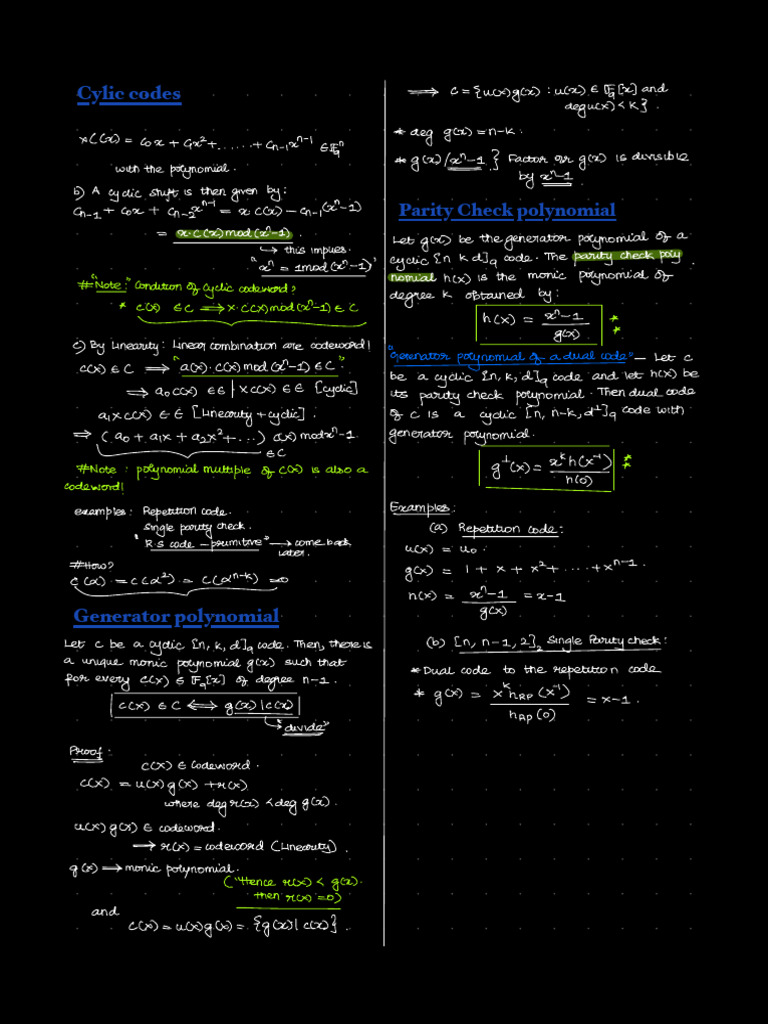 Cylic codes
xC(x) = c₀x + c₁x² + ...... + cₙ₋₁xⁿ⁻¹ ∈ 𝔽qⁿ
with the polynomial.
b) A cyclic shift is then given by:
cₙ₋₁ + c₀x + cₙ₋₂xⁿ⁻¹ = x c(x) - cₙ₋₁(xⁿ-1)
= x·c(x) mod(xⁿ-1).
↳ this implies.
"xⁿ = 1 mod(xⁿ-1)"
#"Note:" Condition of cyclic codeword,
* c(x) ∈ C ⟹ x·c(x) mod(xⁿ-1) ∈ C
c) By Linearity: Linear combination are codeword!
c(x) ∈ C ⟹ "a(x)·c(x) mod(xⁿ-1) ∈ C"
⟹ a₀c(x) ∈ C | xc(x) ∈ C [cyclic]
a₁xc(x) ∈ C [Linearity + cyclic].
⟹ (a₀ + a₁x + a₂x² + ...) c(x) mod xⁿ-1
∈ C
#Note: polynomial multiple of c(x) is also a
codeword!
examples: Repetition code.
Single parity check.
"R.S code - primitive" ⟶ come back
later.
#How?
c(α) = c(α²) = c(αⁿ⁻ᵏ) = 0
Generator polynomial
Let c be a cyclic [n, k, d]q code. Then, there is
a unique monic polynomial g(x) such that
for every c(x) ∈ 𝔽q[x] of degree n-1.
c(x) ∈ C ⟺ g(x) | c(x)
↳ "divide"
Proof:
c(x) ∈ codeword.
c(x) = u(x) g(x) + r(x)
where deg r(x) < deg g(x).
u(x) g(x) ∈ codeword.
⟶ r(x) = codeword (Linearity).
g(x) ⟶ monic polynomial.
("Hence r(x) < g(x).
then r(x) = 0)
and
c(x) = u(x)g(x) = {g(x) | c(x)}.
⟹ C = {u(x)g(x) : u(x) ∈ 𝔽q[x] and
deg u(x) < k}.
* deg g(x) = n-k.
* g(x)/xⁿ-1 } Factor or g(x) is divisible
by xⁿ-1.
Parity Check polynomial
Let g(x) be the generator polynomial of a
cyclic [n k d]q code. The parity check poly
nomial h(x) is the monic polynomial of
degree k obtained by:
h(x) = (xⁿ-1)/g(x) **
"Generator polynomial of a dual code" — Let c
be a cyclic [n, k, d]q code and let h(x) be
its parity check polynomial. Then dual code
of c is a cyclic [n, n-k, d⊥]q code with
generator polynomial.
g⊥(x) = xᵏh(x⁻¹)/h(0) **
Examples:
(a) Repetition code:
u(x) = u₀.
g(x) = 1 + x + x² + .... + xⁿ⁻¹.
h(x) = (xⁿ-1)/g(x) = x-1
(b) [n, n-1, 2]₂ Single Parity check:
* Dual code to the repetition code
* g(x) = xᵏh_RP(x⁻¹)/h_RP(0) = x-1.